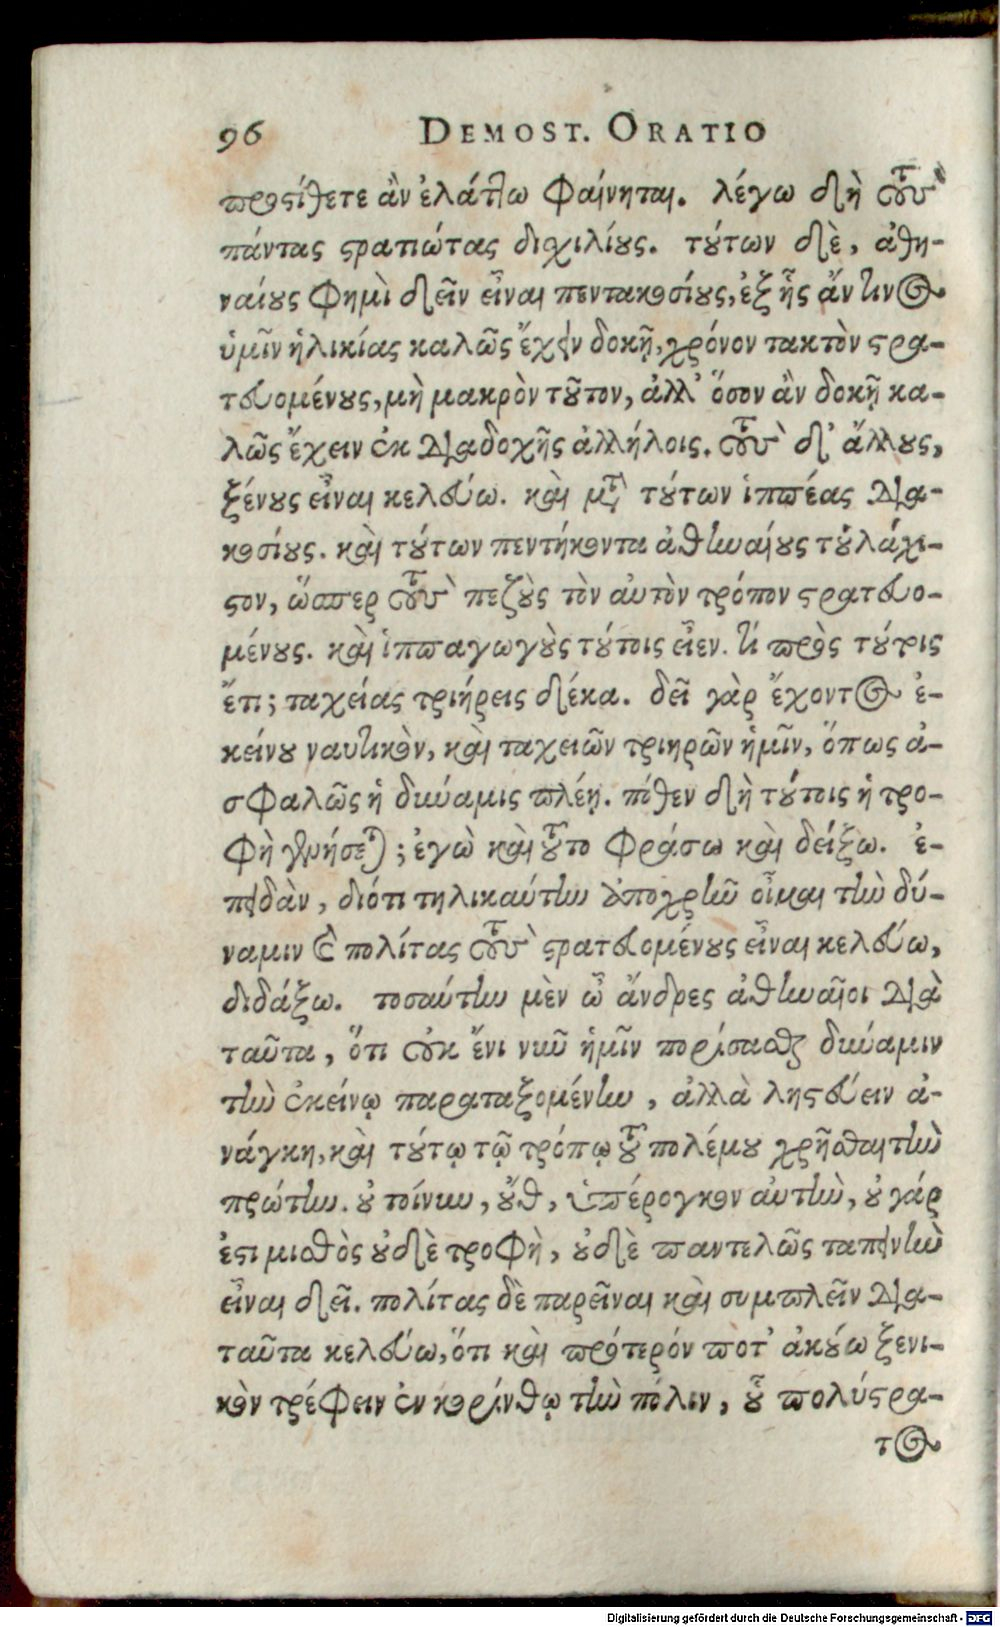 96 DEMOST. ORATIO
προσίθετε ἂν ἐλάττω φαίνηται. λέγω δὴ τοὺς
πάντας στρατιώτας διχιλίους. τούτων δὲ, ἀθη-
ναίους φημὶ δεῖν εἶναι πεντακοσίους, ἐξ ἧς ἄν τινος
ὑμῖν ἡλικίας καλῶς ἔχειν δοκῇ, χρόνον τακτὸν στρα-
τευομένους, μὴ μακρὸν τοῦτον, ἀλλ’ ὅσον ἂν δοκῇ κα-
λῶς ἔχειν ἐκ διαδοχῆς ἀλλήλοις. τοὺς δ’ ἄλλους,
ξένους εἶναι κελεύω. καὶ μετὰ τούτων ἱππέας δια-
κοσίους. καὶ τούτων πεντήκοντα ἀθηναίους τοὐλάχι-
στον, ὥσπερ τοὺς πεζοὺς τὸν αὐτὸν τρόπον στρατευο-
μένους. καὶ ἱππαγωγοὺς τούτοις εἶεν. τί πρὸς τούτοις
ἔτι; ταχείας τριήρεις δέκα. δεῖ γὰρ ἔχοντος ἐ-
κείνου ναυτικὸν, καὶ ταχειῶν τριηρῶν ἡμῖν, ὅπως ἀ-
σφαλῶς ἡ δύναμις πλέῃ. πόθεν δὴ τούτοις ἡ τρο-
φὴ γενήσεται; ἐγὼ καὶ τοῦτο φράσω καὶ δείξω. ἐ-
πειδὰν, διότι τηλικαύτην ἀποχρῆν οἶμαι τὴν δύ-
ναμιν καὶ πολίτας τοὺς στρατευομένους εἶναι κελεύω,
διδάξω. τοσαύτην μὲν ὦ ἄνδρες ἀθηναῖοι διὰ
ταῦτα, ὅτι οὐκ ἔνι νῦν ἡμῖν πορίσασθαι δύναμιν
τὴν ἐκείνῳ παραταξομένην, ἀλλὰ λῃστεύειν ἀ-
νάγκη, καὶ τούτῳ τῷ τρόπῳ τοῦ πολέμου χρῆσθαι τὴν
πρώτην. οὐ τοίνυν, οὔθ, ὑπέρογκον αὐτὴν, οὐ γάρ
ἐστι μισθὸς οὐδὲ τροφὴ, οὐδὲ παντελῶς ταπεινὴν
εἶναι δεῖ. πολίτας δὲ παρεῖναι καὶ συμπλεῖν δια-
ταῦτα κελεύω, ὅτι καὶ πρότερόν ποτ’ ἀκούω ξενι-
κὸν τρέφειν ἐν κορίνθῳ τὴν πόλιν, οὗ πολύστρα-
τος
Digitalisierung gefördert durch die Deutsche Forschungsgemeinschaft - DFG